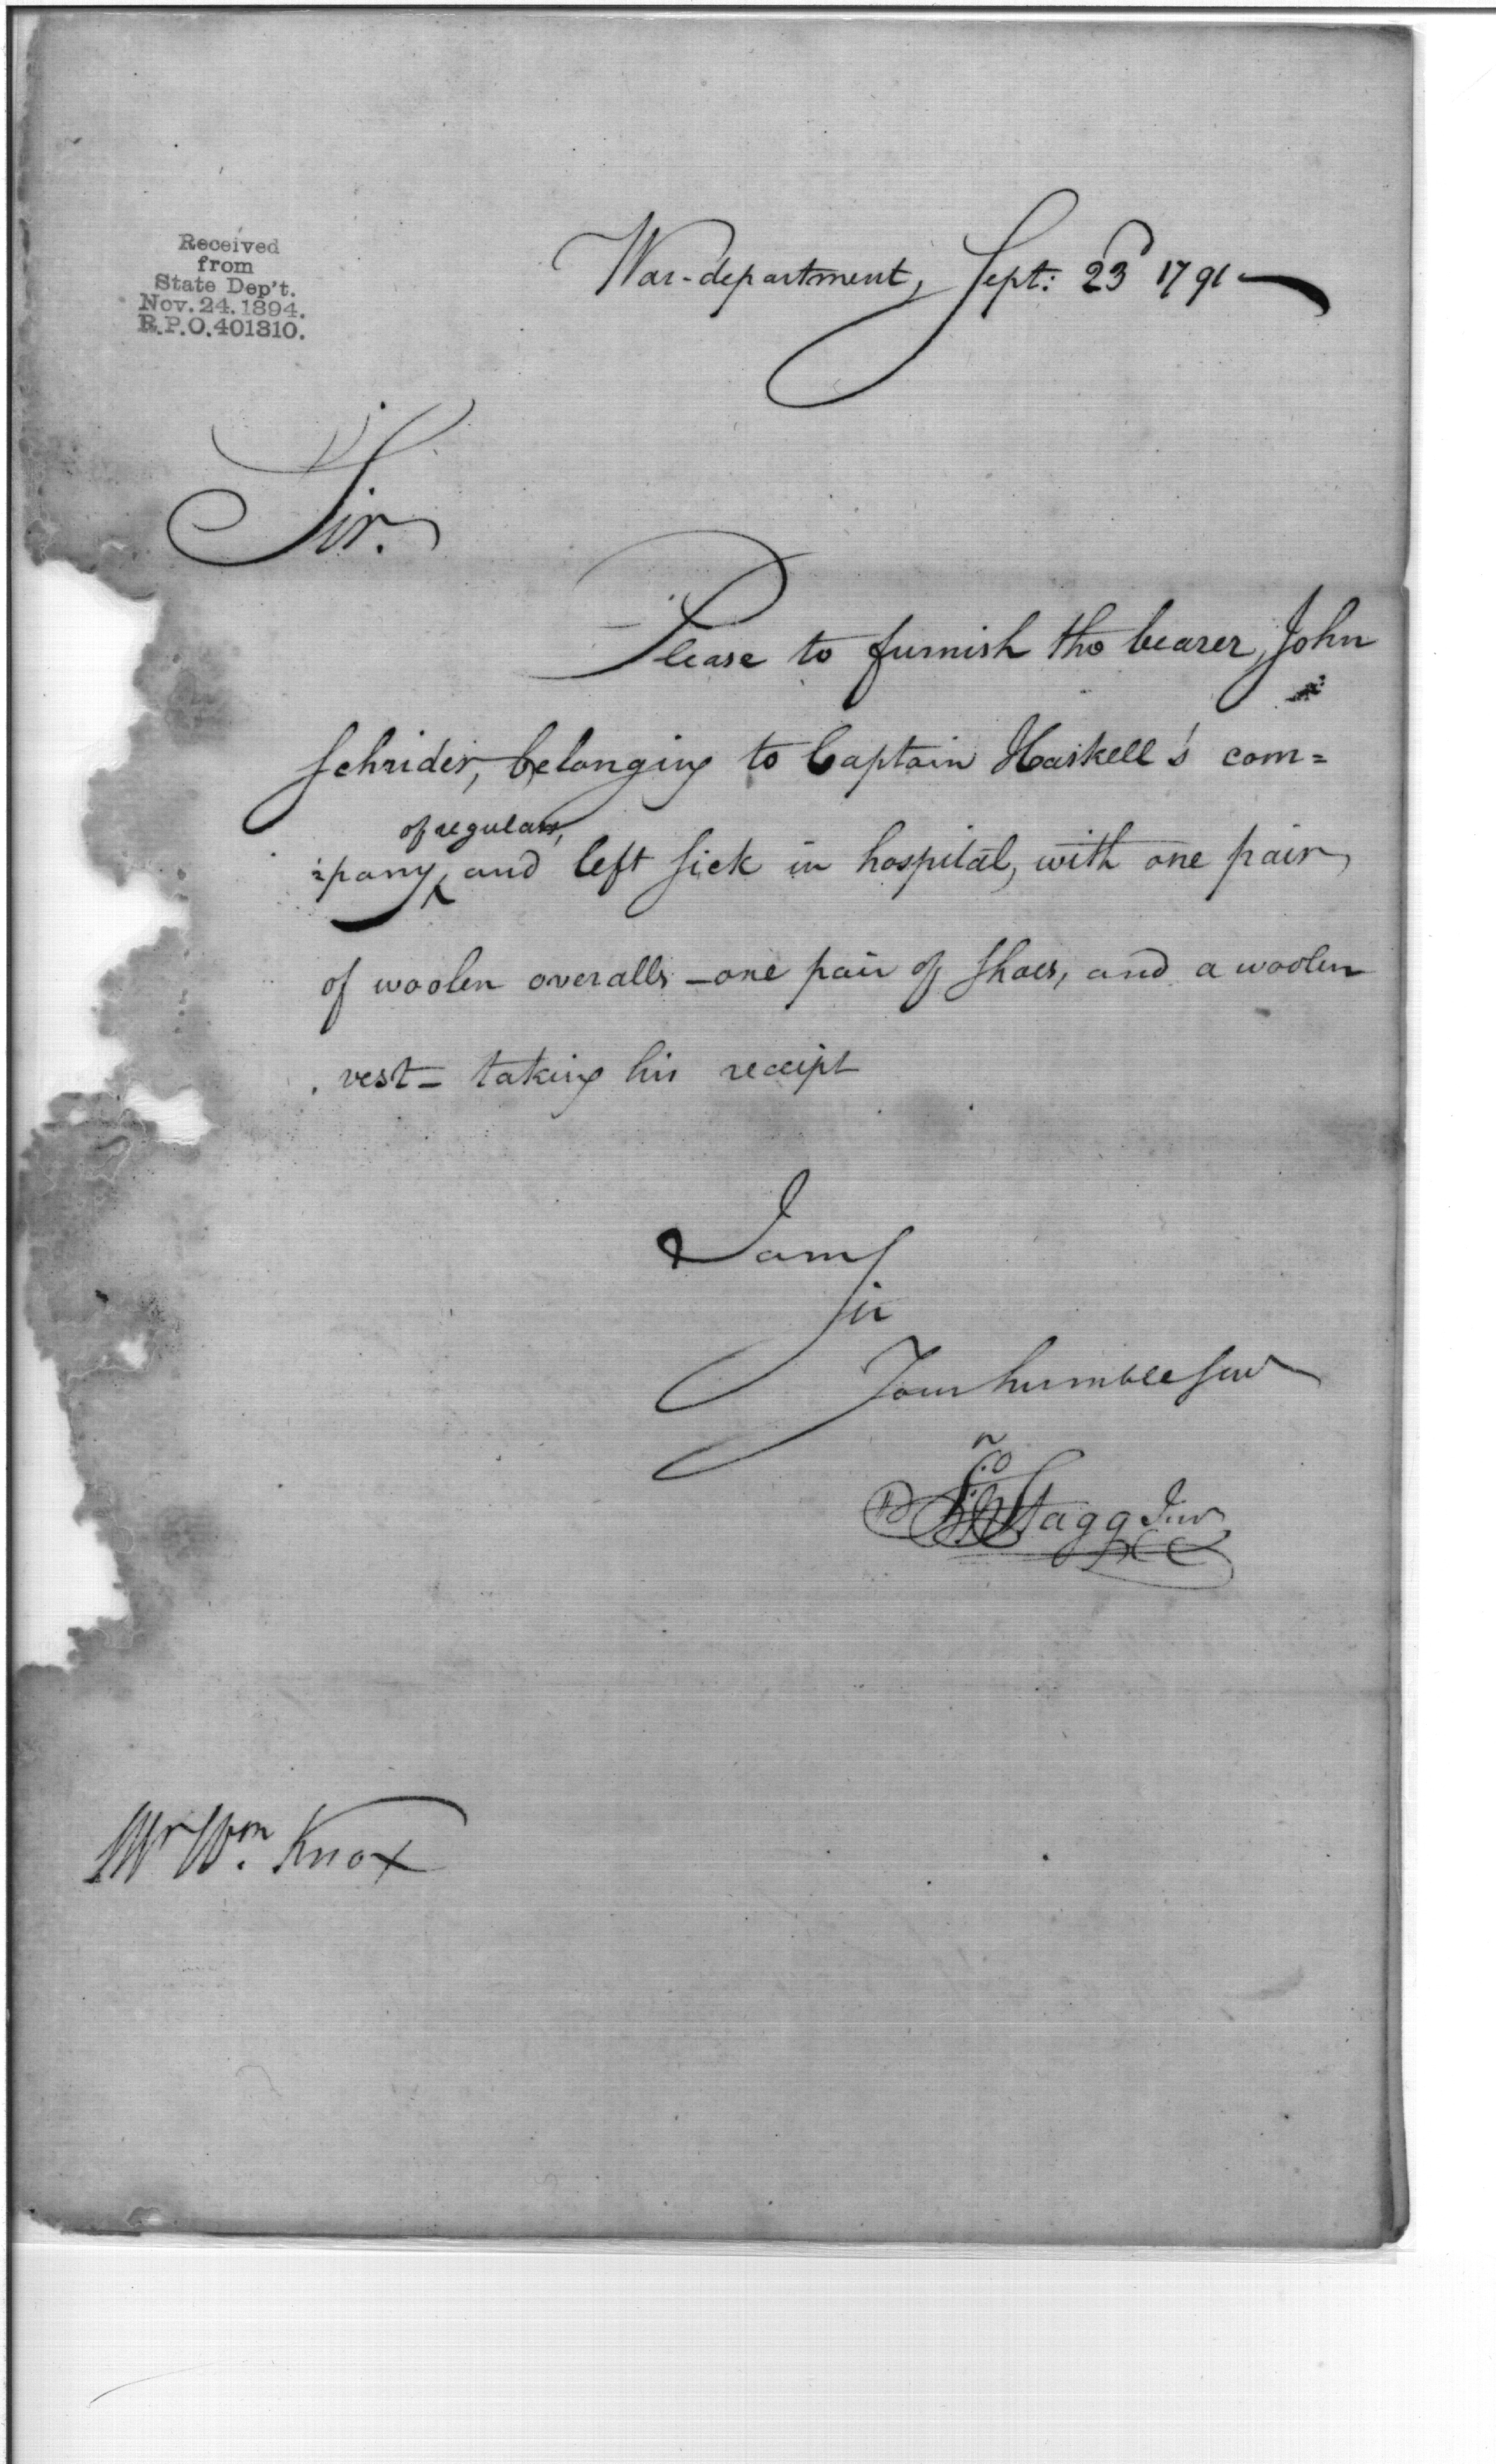 Received
from
State Dep't.
Nov. 24. 1894.
R.P.O. 401310.
War-department, Sept: 23d 1791
Sir.
Please to furnish the bearer, John
Schrider, belonging to Captain Haskell's com=
of regulars,
=pany, and left sick in hospital, with one pair
of woolen overalls - one pair of shoes, and a woolen
vest - taking his receipt
I am
Sir
Your humble Serv
Stagg Jun
Mr Wm. Knox